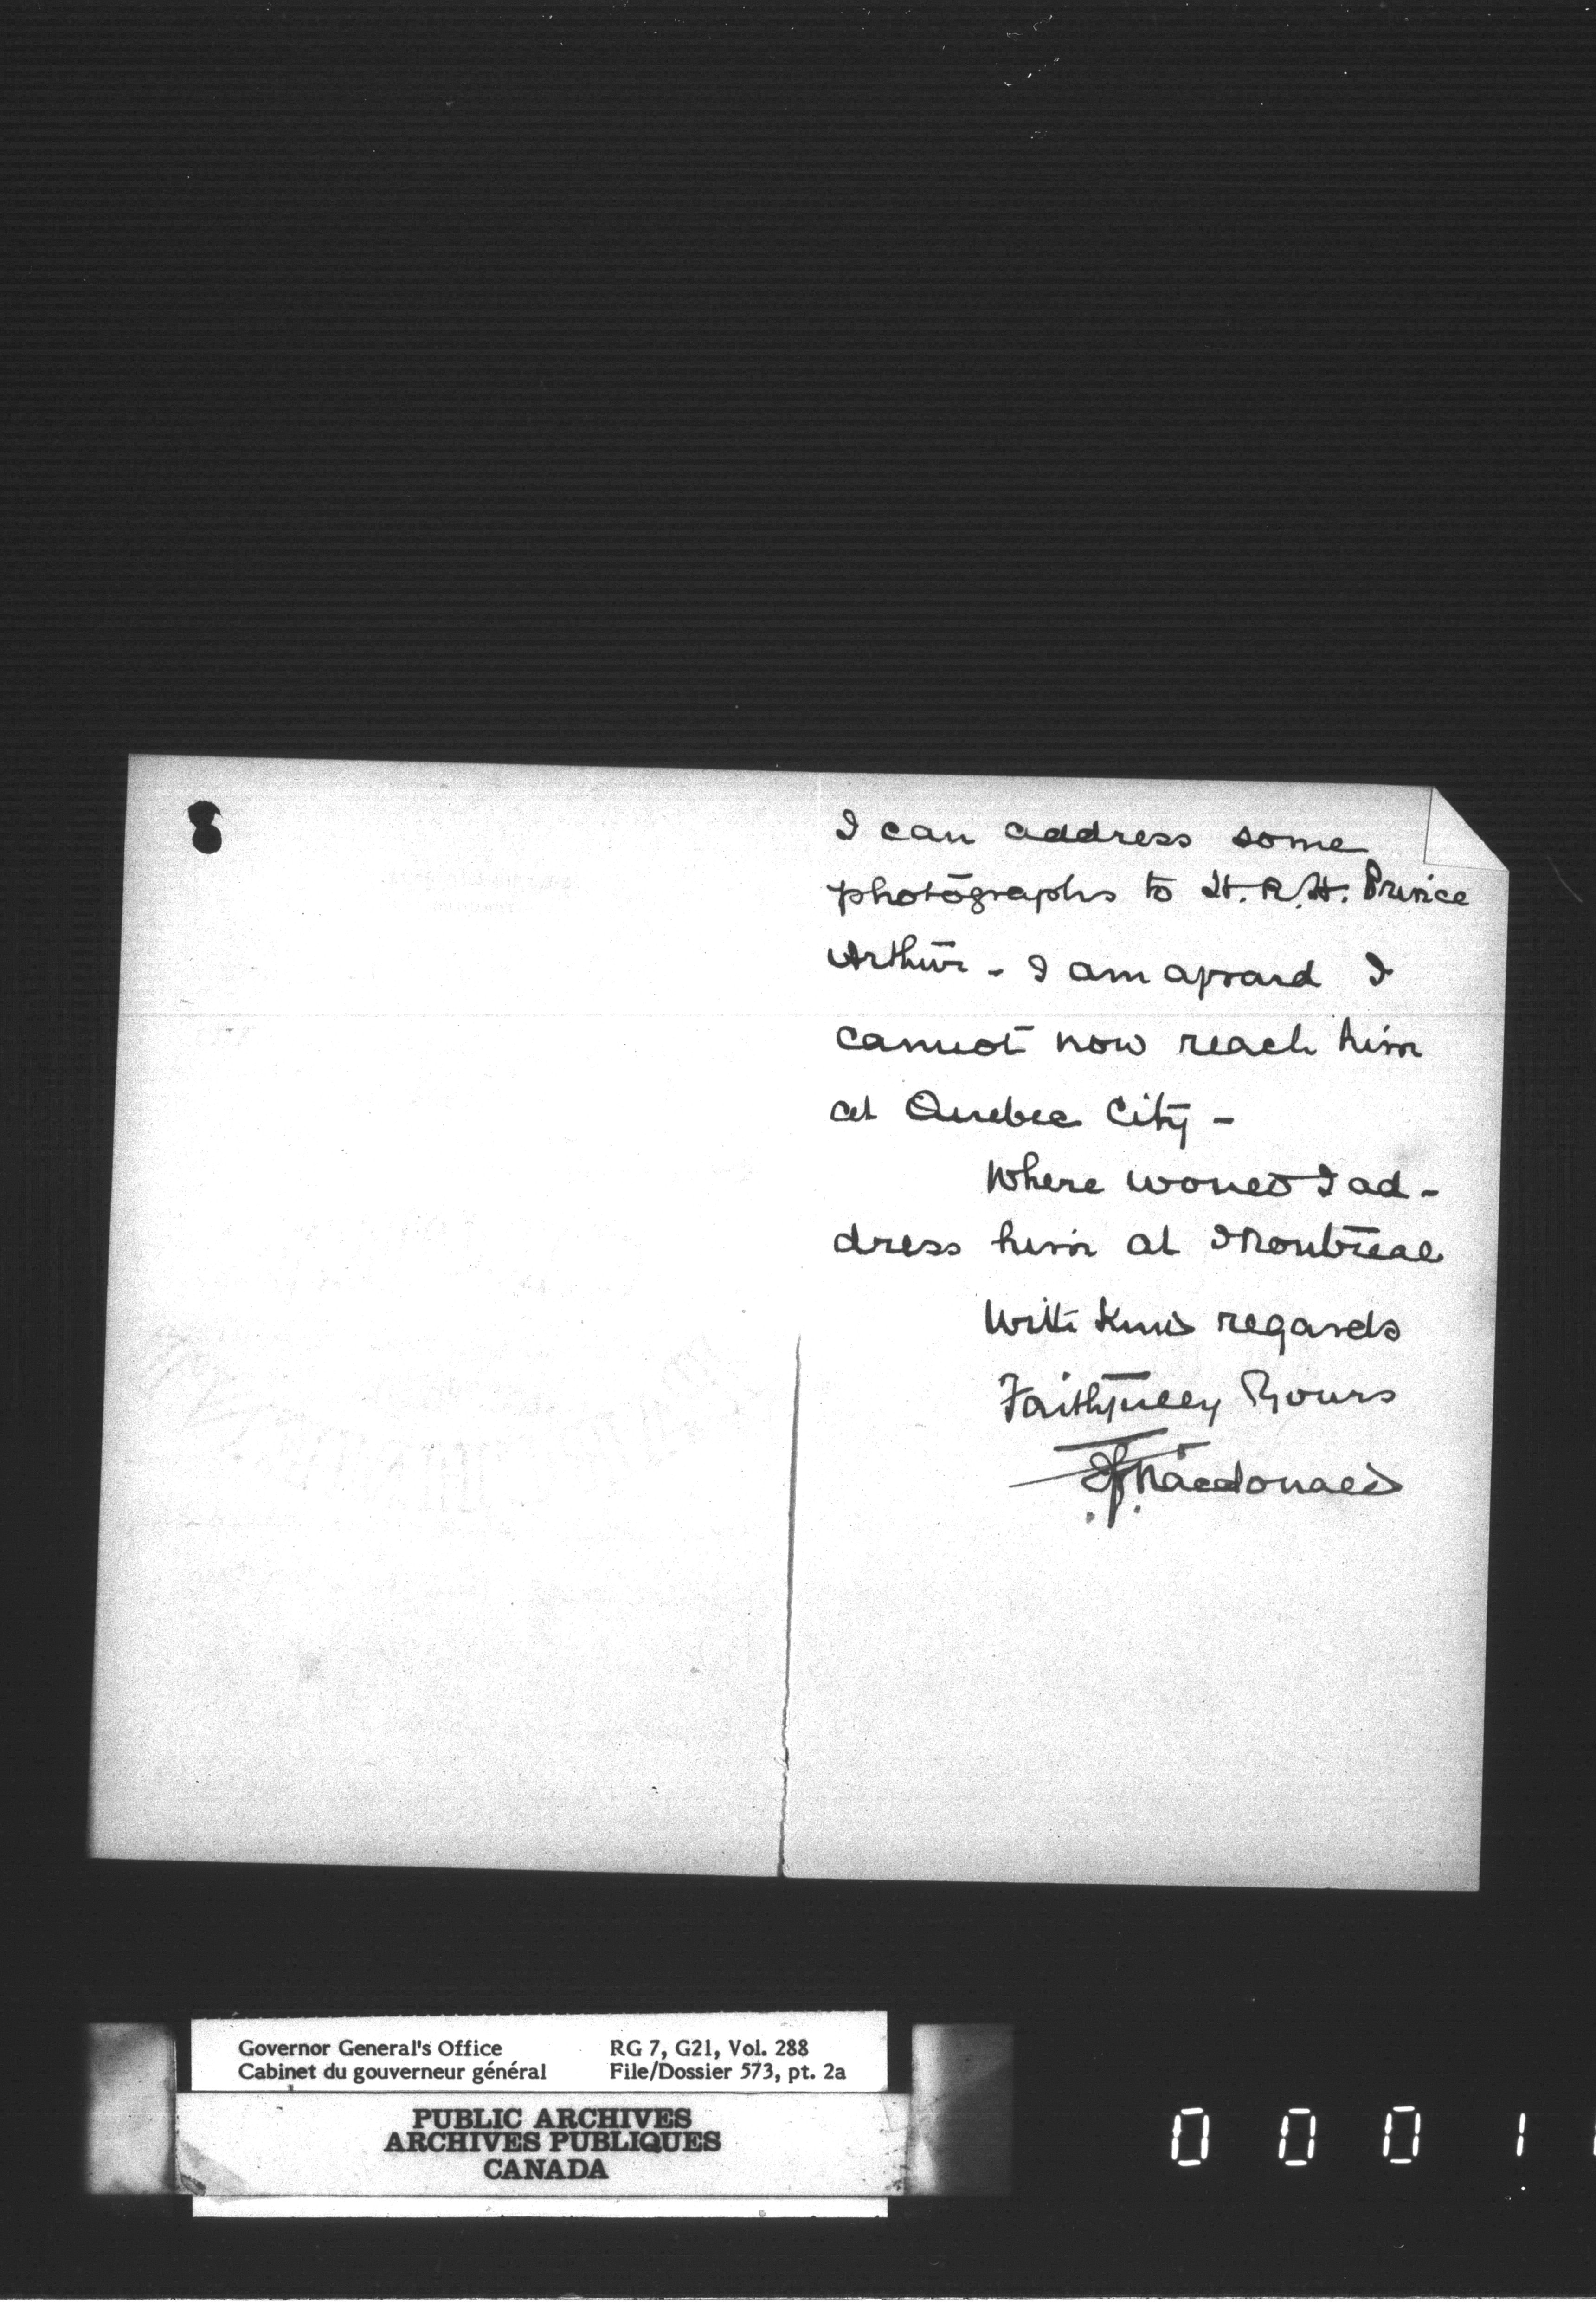 I can address some
photographs to H.R.H. Prince
Arthur - I am afraid I
cannot now reach him
at Quebec City -
Where would I ad-
dress him at Montreal
With kind regards
Faithfully Yours
Macdonald
Governor General's Office RG 7, G21, Vol. 288
Cabinet du gouverneur général File/Dossier 573, pt. 2a
PUBLIC ARCHIVES
ARCHIVES PUBLIQUES
CANADA
0 0 0 1